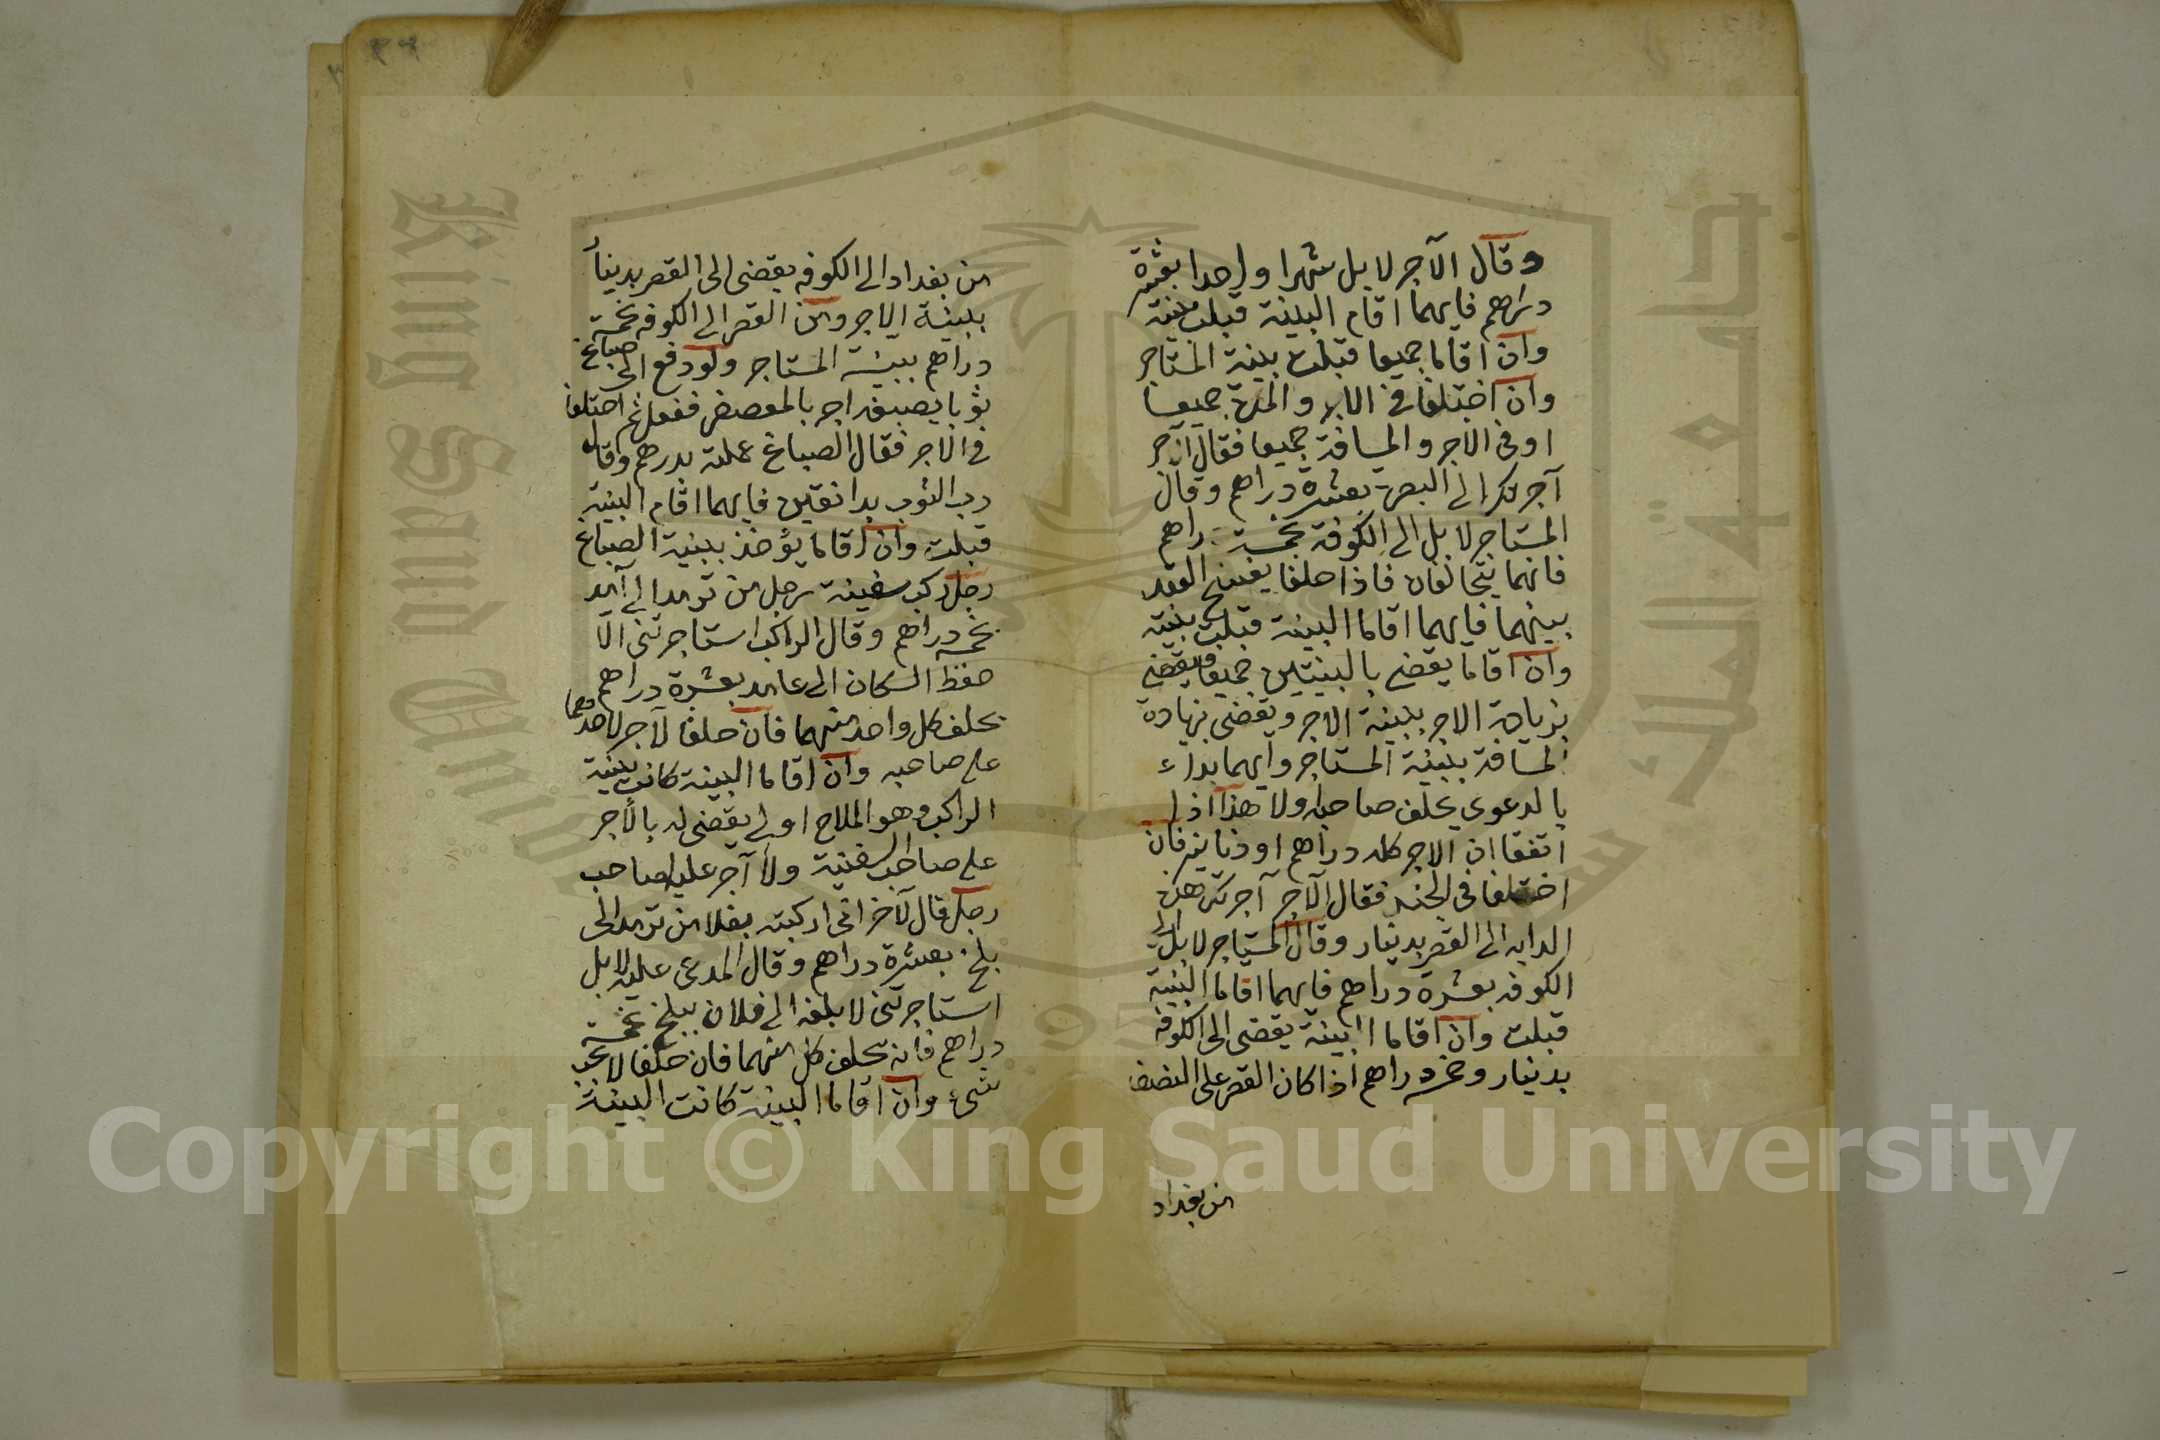 وقال الآجر لا بل شهرا واحدا بعشرة
دراهم فايهما اقام البينة قبلت بينته
وان اقاما جميعا قبلت بينة المستاجر
وان اختلفا في الاجر والمدة جميعا
او في الاجر والمسافة جميعا فقال الآجر
آجرتك الى البصرة بعشرة دراهم وقال
المستاجر لا بل الى الكوفة بخمسة دراهم
فانهما يتحالفان فاذا حلفا يفسخ العقد
بينهما فايهما اقاما البينة قبلت بينته
وان اقاما يقضى بالبينتين جميعا ويقضى
بزيادة الاجر ببينة الآجر ويقضى بزيادة
المسافة ببينة المستاجر وايهما بداء
بالدعوى يحلف صاحبه اولا هذا اذا
اتفقا ان الاجر كله دراهم او دنانير فان
اختلفا في الجنس فقال الآجر آجرتك هذه
الدابه الى القصر بدينار وقال المستاجر لا بل الى
الكوفه بعشرة دراهم فايهما اقاما البينة
قبلت وان اقاما البينة يقضى الى الكوفه
بدينار وخمسة دراهم اذا كان القصر على النصف
من بغداد
من بغداد الى الكوفه يقضى الى القصر بدينار
ببينة الآجر ومن القصر الى الكوفه بخمسة
دراهم ببينة المستاجر ولو دفع الى صباغ
ثوبا يصبغه احمر بالعصفر ففعل ثم اختلفا
في الاجر فقال الصباغ عملته بدرهم وقال
رب الثوب بدانقين فايهما اقام البينة
قبلت وان اقاما يؤخذ ببينة الصباغ
رجل ركب سفينة رجل من ترمد الى آمد
بخمسة دراهم وقال الراكب استاجرتنى الا
حفظ السكان الى عامد بعشرة دراهم
يحلف كل واحد منهما فان حلفا لا اجر لاحدهما
على صاحبه وان اقاما البينة كانت بينة
الراكب وهو الملاح اولى يقضى له بالأجر
على صاحب السفينة ولا آجر عليه لصاحب
رجل قال لآخر انى اركبته بغلا من ترمد الى
بلخ بعشرة دراهم وقال المدعى عليه لا بل
استاجرتنى لابلغه الى فلان ببلخ بخمسة
دراهم فانه يحلف كل منهما فان حلفا لا يجب
شىء وان اقاما البينة كانت البينة
Copyright © King Saud University
King Saud University
جامعة الملك سعود
1957